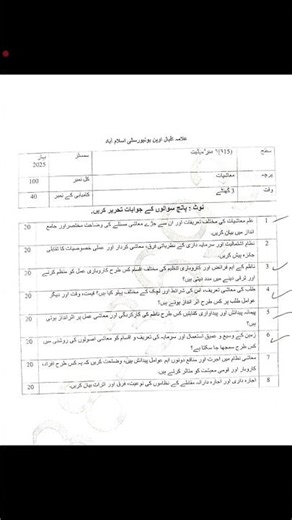 علامہ اقبال اوپن یونیورسٹی اسلام آباد
سطح
سمسٹر بہار 2025
پرچہ معاشیات کل نمبر 100
وقت 3 گھنٹے کامیابی کے نمبر 40
نوٹ : پانچ سوالوں کے جوابات تحریر کریں۔
1 علم معاشیات کی مختلف تعریفات اور ان سے جڑے معاشی مسئلے کی وضاحت مختصر اور جامع انداز میں بیان کریں۔ 20
2 نظام اشتمالیت اور سرمایہ داری کے نظریاتی فرق، معاشی کردار اور عملی خصوصیات کا تقابلی جائزہ پیش کریں۔ 20
3 ناظم کے اہم فرائض اور کاروباری تنظیم کی مختلف اقسام کس طرح کاروباری عمل کو منظم کرنے اور ترقی دینے میں مدد دیتی ہیں؟ 20
4 طلب کی معاشی تعریف، اس کی شرائط اور لچک کے مختلف پہلو کیا ہیں؟ قیمت، وقت اور دیگر عوامل طلب پر کس طرح اثر انداز ہوتے ہیں؟ 20
5 پیمانہ پیدائش اور پیداواری کفایتیں کس طرح ناظم کی کارکردگی اور معاشی عمل پر اثر انداز ہوتی ہیں؟ 20
6 زمین کے وسیع و عمیق استعمال اور سرمایہ کی تعریف و اقسام کو معاشی اصولوں کی روشنی میں کس طرح سمجھا جا سکتا ہے؟ 20
7 معاشی نظام میں اجرت اور منافع دونوں اہم عوامل پیدائش ہیں، وضاحت کریں کہ یہ کس طرح افراد، کاروبار اور قومی معیشت کو متاثر کرتے ہیں۔ 20
8 اجارہ داری اور اجارہ دارانہ مقابلے کے نظاموں کی نوعیت، فرق اور اثرات بیان کریں۔ 20